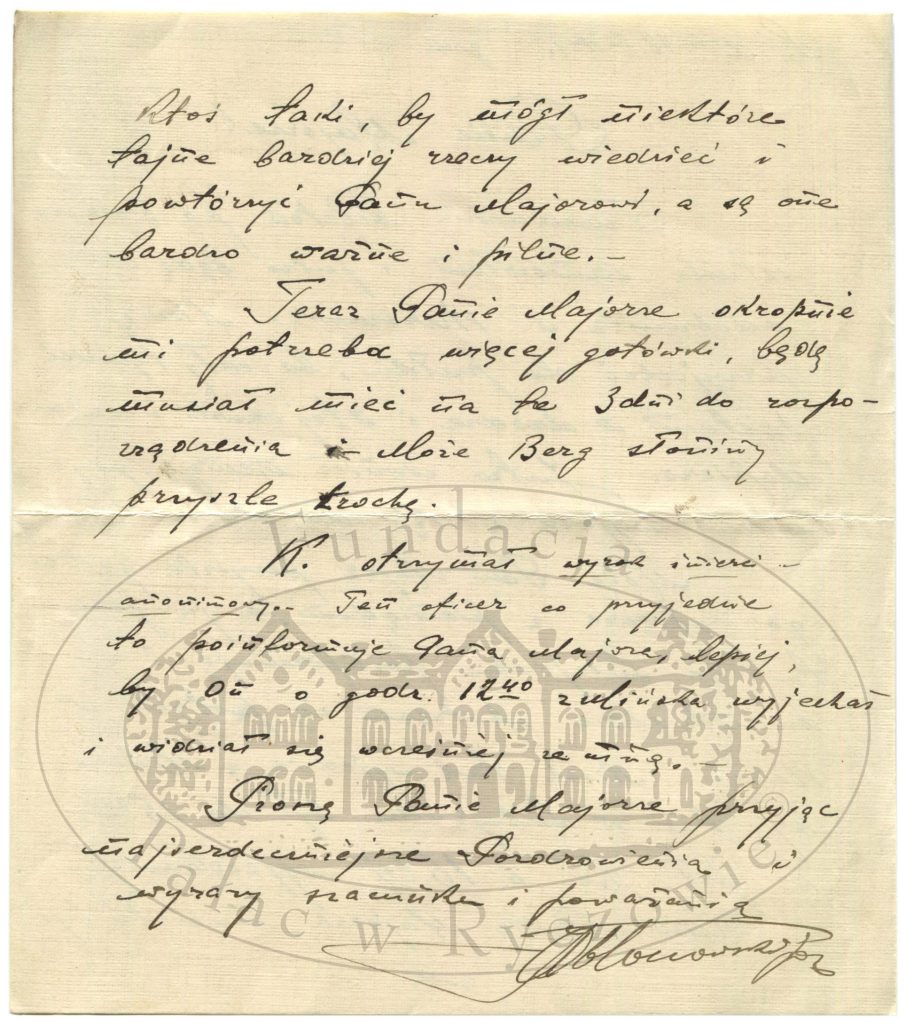 ktoś taki, by mógł niektóre
tajne bardziej rzeczy wiedzieć i
powtórzyć Panu Majorowi, a są one
bardzo ważne i pilne. –
Teraz Panie Majorze okropnie
mi potrzeba więcej gotówki, będę
musiał mieć na te 3 dni do rozpo-
rządzenia – Może Berg słoniny
przyszle trochę.
K. otrzymał wyrok śmierci –
anonimowy. – Ten oficer co przyjedzie
to poinformuje Pana Majora, lepiej,
by On o godz. 12 40 z Lublińska wyjechał
i widział się wcześniej ze mną. –
Proszę Panie Majorze przyjąć
najserdeczniejsze Pozdrowienia i
wyrazy szacunku i poważania
Fundacja
Pałac w Ryczowie